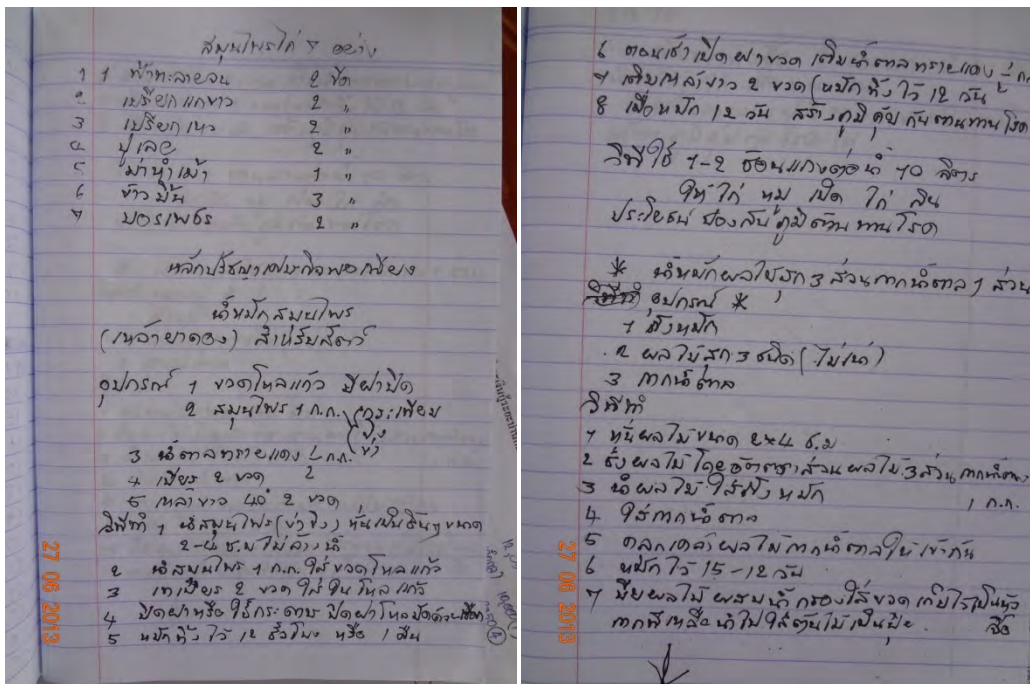 สมุนไพรไก่ 7 อย่าง
1 ฟ้าทะลายจน 2 ขีด
2 เปรียกแกขาว 2 "
3 เปรียกเหว 2 "
4 ปูเลย 2 "
5 ม่านำเม้า 1 "
6 ข้าวมิ้น 3 "
7 บอรเพชร 2 "
หลักปรัชญาเศรษกิจพอเพียง
น้ำหมักสมุนไพร
(เหล้ายาดอง) สำหรับสัตว์
อุปกรณ์ 1 ขวดโหลแก้ว มีฝาปิด
2 สมุนไพร 1 ก.ก. กระเทียม
ขิง
ข่า
3 น้ำตาลทรายแดง ก.ก.
4 เบียร 2 ขวด
5 เหล้าขาว 40 2 ขวด
วิธีทำ 1 นำสมุนไพร (ข่า ขิง) หั่นเป็นชิ้นๆ ขนาด
2-4 ซ.ม ไม่ล้างน้ำ
2 นำสมุนไพร 1 ก.ก. ใส่ขวดโหลแก้ว
3 เทเบียร 2 ขวด ใส่ในโหลแก้ว
4 ปิดฝาหรือใช้กระดาษ ปิดฝาโหลมัดด้วยเชือก
5 หมักทิ้งไว้ 12 ชั่วโมง หรือ 1 คืน
27 06 2013
6 ตอนเช้าเปิดฝาขวด เติมน้ำตาลทรายแดง
7 เติมเหล้าขาว 2 ขวด (หมักทิ้งไว้ 12 วัน
8 เมื่อหมัก 12 วัน สร้างภูมิคุ้มกันตานทานโรค
วิธีใช้ 1-2 ช้อนแกงต่อน้ำ 10 ลิตร
ให้ไก่ หมู เป็ด ไก่ กิน
ประโยชน์ ป้องกันภูมิต้านทานโรค
* น้ำหมักผลไม้สุก 3 ส่วนกากน้ำตาล 1 ส่วน
อุปกรณ์ *
1 ถังหมัก
2 ผลไม้สุก 3 ชนิด (ไม่เน่า)
3 กากน้ำตาล
วิธีทำ
1 หั่นผลไม้ขนาด 2×4 ซ.ม
2 ชั่งผลไม้โดยอัตตราส่วนผลไม้ 3 ส่วน กากน้ำตาล
1 ก.ก.
3 นำผลไม้ ใส่ถังหมัก
4 ใส่กากน้ำตาล
5 คลุกเคล้าผลไม้กากน้ำตาลให้เข้ากัน
6 หมักไว้ 15-12 วัน
7 ผลไม้ ผสมน้ำกรองใส่ขวดเก็บไว้เป็นหัว
เชื้อ
กากที่เหลือนำไปใส่ต้นไม้เป็นปุ๋ย
27 06 2013